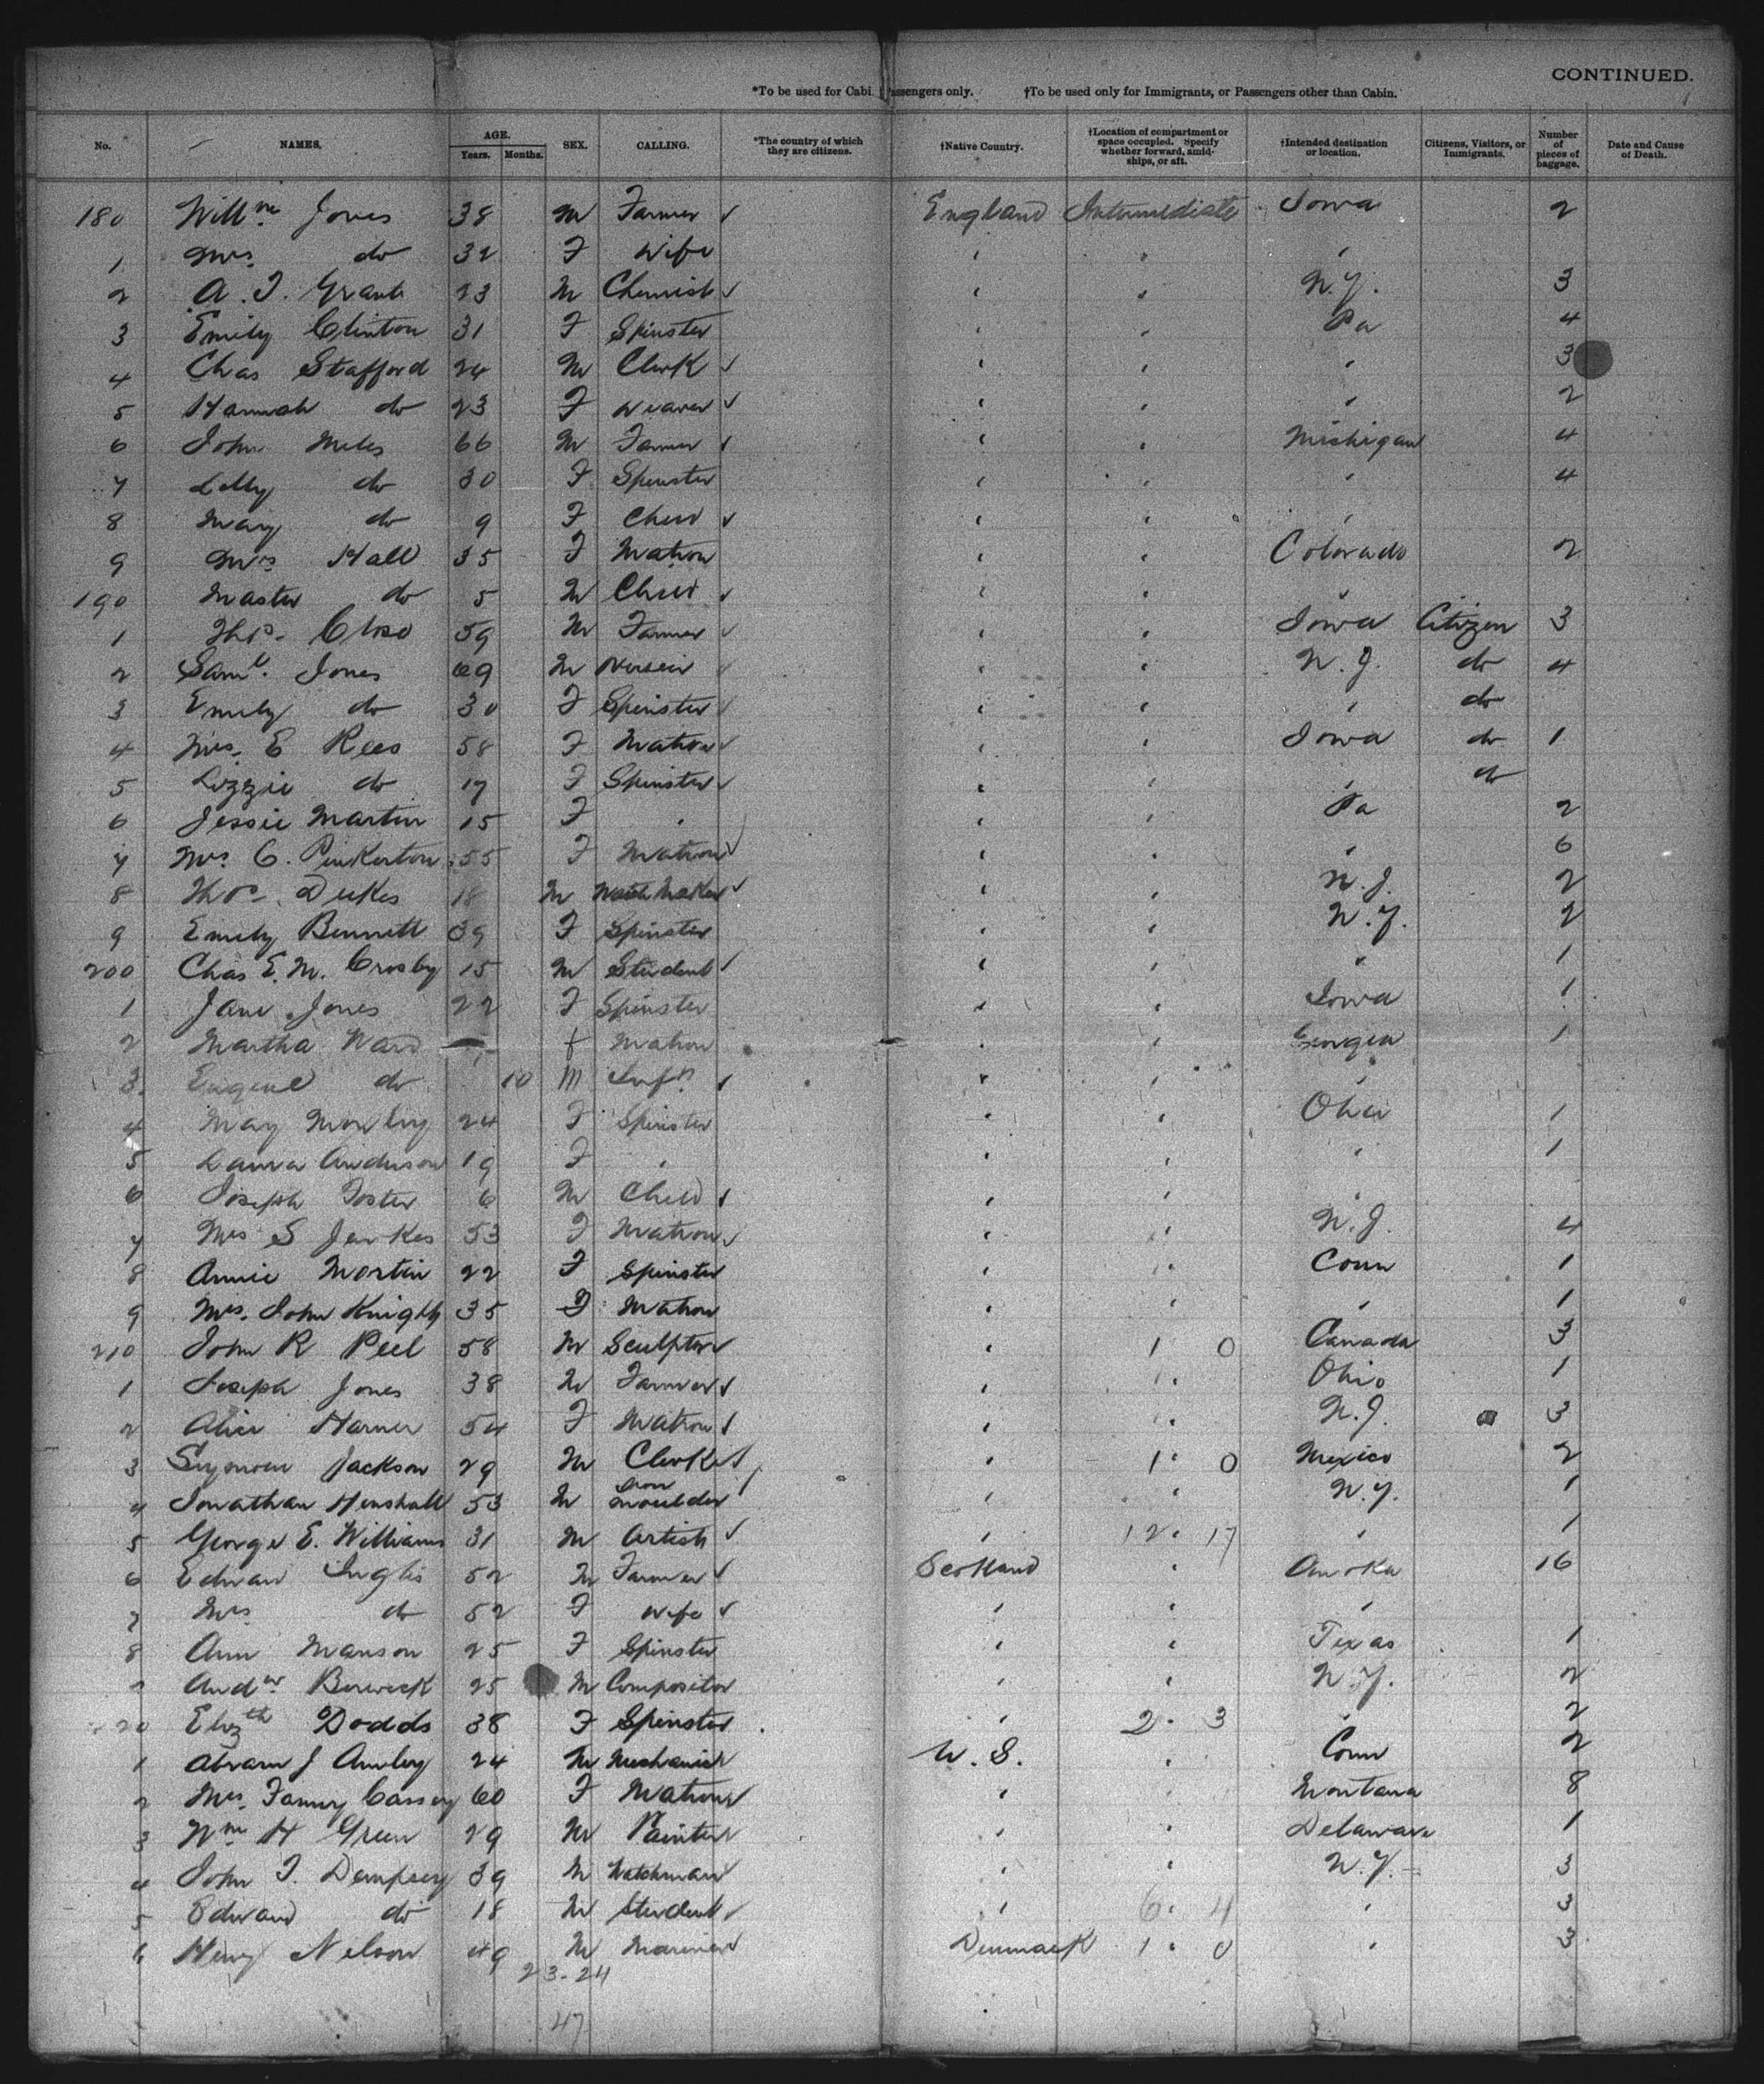 CONTINUED.
*To be used for Cabi Passengers only. †To be used only for Immigrants, or Passengers other than Cabin.
No. NAMES. AGE. Years. Months. SEX. CALLING. *The country of which they are citizens. †Native Country. †Location of compartment or space occupied. Specify whether forward, amidships, or aft. †Intended destination or location. Citizens, Visitors, or Immigrants. Number of pieces of baggage. Date and Cause of Death.
180 Willm Jones 38 M Farmer ✓ England Intermediate Iowa 2
1 Mrs do 32 F Wife " " "
2 A. T. Grant 23 M Chemist ✓ " " N.Y. 3
3 Emily Clinton 31 F Spinster " " Pa 4
4 Chas Stafford 24 M Clerk ✓ " " " 3
5 Hannah do 23 F Weaver ✓ " " " 2
6 John Miles 66 M Farmer ✓ " " Michigan 4
7 Lilly do 30 F Spinster " " " 4
8 May do 9 F Child ✓ " " "
9 Mrs Hall 35 F Matron " " Colorado 2
190 Master do 5 M Child ✓ " " "
1 Thos. 59 M Farmer ✓ " " Iowa Citizen 3
2 Saml. Jones 69 M ✓ " " N.J. do 4
3 Emily do 30 F Spinster ✓ " " " do
4 Mrs. E Rees 58 F Matron ✓ " " Iowa do 1
5 Lizzie do 17 F Spinster ✓ " " " do
6 Jessie Martin 15 F " " " Pa 2
7 Mrs. C. Pinkerton 55 F Matron ✓ " " " 6
8 Thos. Dukes 18 M Watch Maker ✓ " " N.J. 2
9 Emily Bennett 39 F Spinster " " N.Y. 2
200 Chas E. M. Crosby 15 M Student ✓ " " " 1
1 Jane Jones 22 F Spinster " " Iowa 1
2 Martha Ward — f Matron " " Georgia 1
3 Eugene do 10 M Inft ✓ " " "
4 May 24 F Spinster " " Ohio 1
5 Laura Anderson 19 F " " " " 1
6 Joseph Foster 6 M Child ✓ " " "
7 Mrs S Jenkes 53 F Matron ✓ " " N.J. 4
8 Annie Martin 22 F Spinster " " Conn 1
9 Mrs. John Knight 35 F Matron " " " 1
210 John R Peel 58 M Sculptor ✓ " 1 0 Canada 3
1 Joseph Jones 38 M Farmer ✓ " " Ohio 1
2 Alice Harner 54 F Matron ✓ " " N.J. 3
3 Seymour Jackson 29 M Clerk ✓ " 1 " 0 Mexico 2
4 Jonathan Henshall 53 M Iron Moulder ✓ " " N.Y. 1
5 George E. Williams 31 M Artist ✓ " 12 " 17 " 1
6 Edward Inglis 52 M Farmer ✓ Scotland " Anoka 16
7 Mrs do 52 F Wife ✓ " " "
8 Ann Manson 25 F Spinster " " Texas 1
Andw Berwick 25 M Compositor " " N.Y. 2
20 Elizth Dodds 38 F Spinster " 2 " 3 " 2
1 Abram J 24 M Mechanic U.S. " Conn 2
2 Mrs. Fanny 60 F Matron ✓ " " Montana 8
3 Wm H Green 29 M Painter " " Delaware 1
4 John F. Dempsey 39 M Watchman ✓ " " N.Y. 3
5 Edward do 18 M Student ✓ " 6 " 4 " 3
6 Henry Nelson 49 M Mariner ✓ Denmark 1 " 0 " 3
23-24
47